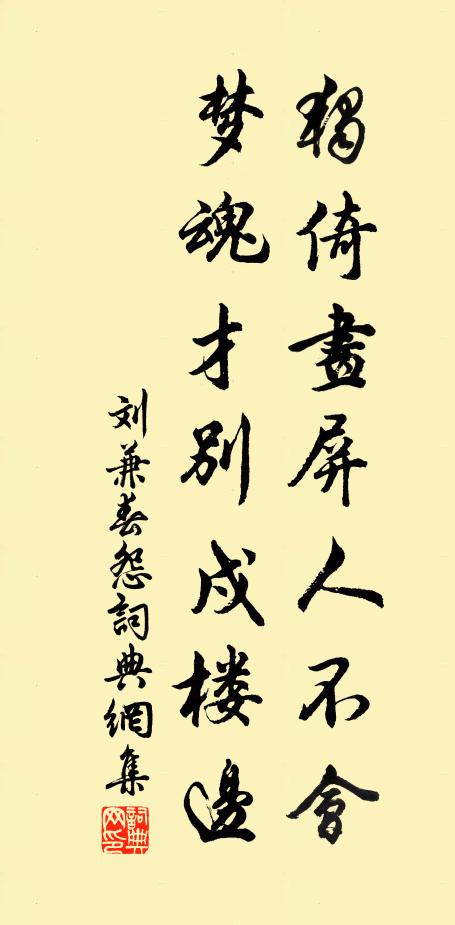 獨倚畫屏人不會
梦魂才别戍楼邊
刘兼春怨詞典網集
詞典网印